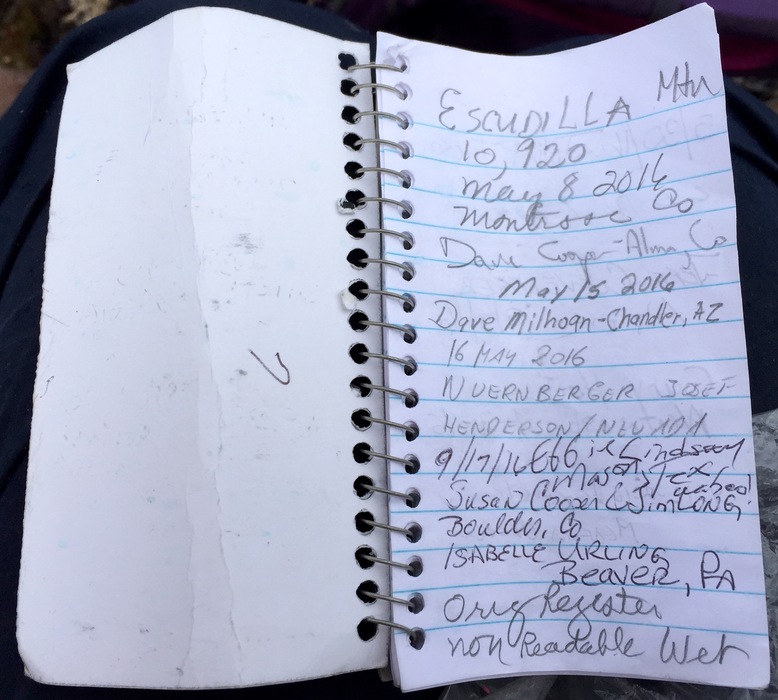 ESCUDILLA Mtn
10,920
May 8 2016
Montrose Co
Dave Cooper-Alma, Co
May 15 2016
Dave Milhoan-Chandler, AZ
16 MAY 2016
NUERNBERGER JOSEF
HENDERSON/NEVADA
9/17/16 Lindsay
Susan Cooper & Jim LONG
Boulder, Co
ISABELLE URLING
BEAVER, PA
Orig Register
non Readable Wet